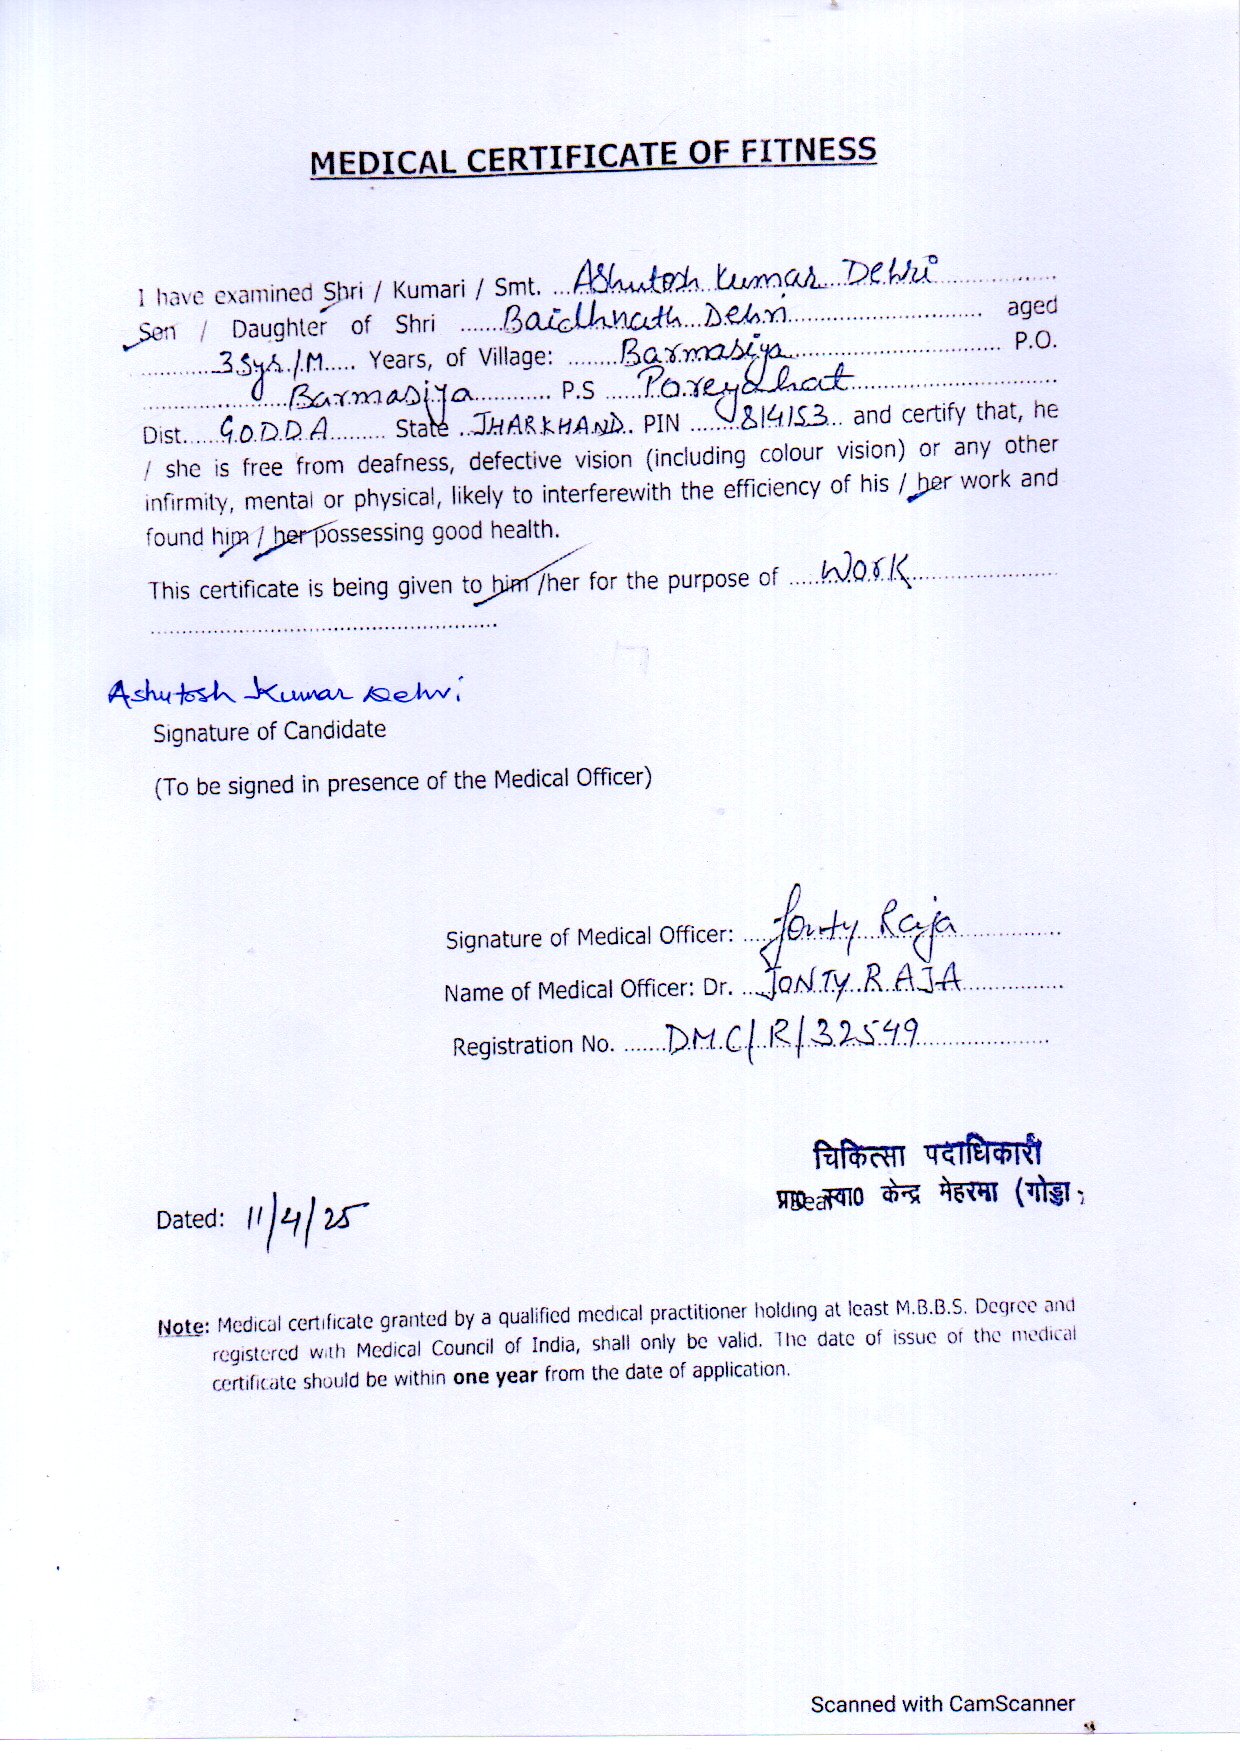 MEDICAL CERTIFICATE OF FITNESS
I have examined Shri / Kumari / Smt. ...Ashutosh Kumar Dehri
Son / Daughter of Shri ...Baidhnath Dehri... aged
...35ys/M... Years, of Village: ...Barmasiya... P.O.
...Barmasiya... P.S ...Poreyahat...
Dist...GODDA... State ..JHARKHAND.. PIN ...814153... and certify that, he
/ she is free from deafness, defective vision (including colour vision) or any other
infirmity, mental or physical, likely to interferewith the efficiency of his / her work and
found him / her possessing good health.
This certificate is being given to him /her for the purpose of ...Work...
Ashutosh Kumar Dehri
Signature of Candidate
(To be signed in presence of the Medical Officer)
Signature of Medical Officer: ...Jonty Raja...
Name of Medical Officer: Dr. ...JONTY RAJA...
Registration No. ...DMC/R/32549...
चिकित्सा पदाधिकारी
प्रा० स्वा० केन्द्र मेहरमा (गोड्डा
Dated: 11/4/25
Note: Medical certificate granted by a qualified medical practitioner holding at least M.B.B.S. Degree and
registered with Medical Council of India, shall only be valid. The date of issue of the medical
certificate should be within one year from the date of application.
Scanned with CamScanner